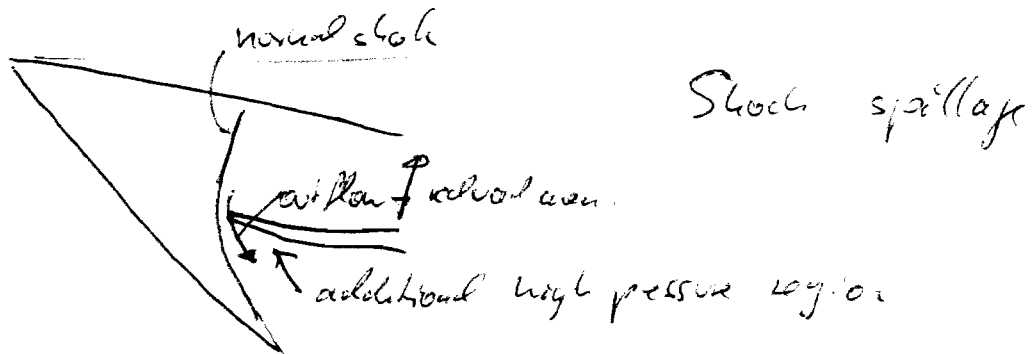 normal shok
Shock spillage
outflow
additional high pessure region